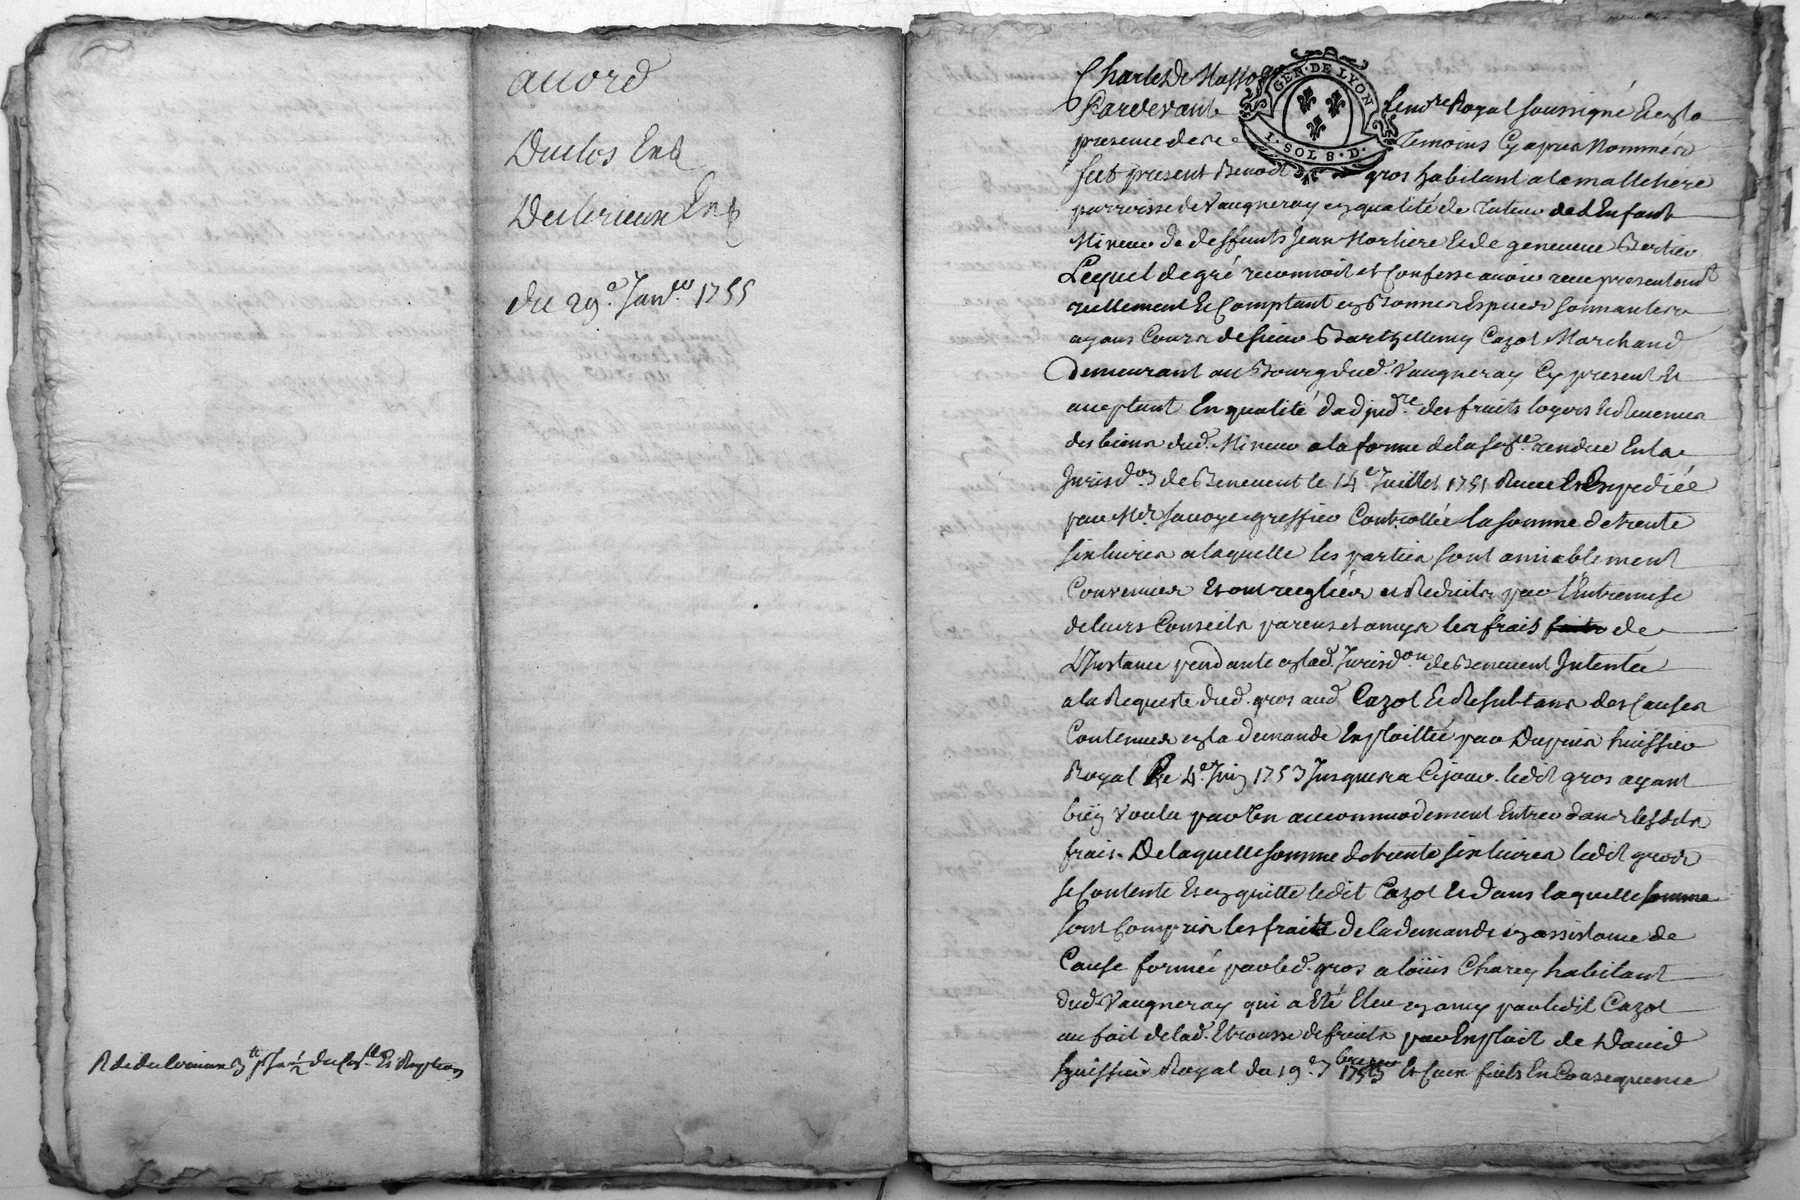 accord
Duclos Et
Duclorieux Et
du 29e Janer 1755
R de duclorieux
Charles de Masso
GEN. DE LYON
1. SOL 8. D.
Pardevant le nore Royal soussigné Et en la
presence de ce temoins Cy apres Nommés
fut present Benoit gros habitant a la mallehere
parroisse de Vaugneray en qualité de Tuteur de lEnfant
Mineur de deffunts Jean Morliere Et de genevieve Bertier
Lequel de gré reconnoit et Confesse avoir receu presentemt
reellement Et Comptant en Bonnes Especes sonnantes
ayans Cours de sieur Barthellemy Cazot Marchand
Demeurant au Bourg dud. Vaugneray Cy present Et
acceptant En qualité dadjudre des fruits loyers Et Revenus
des biens dud. Mineur a la forme de la sence rendue En la
Jurisdon de Benevent le 14e Juillet 1751 Receue Et Expediée
par Me Savoye greffier Controllée la somme de trente
six livres a laquelle les parties sont amiablement
Convenues Et ont regléés et Reduits par l'Entremise
de leurs Conseils parens et amys les frais faits de
L'Instance pendante en lad. Jurisdon de Benevent Intentée
a la Requeste dud. gros aud Cazot Et Resultans des Causes
Contenues en la demande Exploittée par Dupuis huissier
Royal Le 4e Juin 1753 Jusques a Cejour. ledit gros ayant
bien voulu par un accommodement Entrer dans lesdits
frais. De laquelle somme de trente six livres ledit gros
se Contente Et en quitte ledit Cazot Et dans laquelle somme
sont Compris les frais de la demande en assistance de
Cause formée par led. gros a Loüis Charey habitant
dud. Vaugneray qui a Eté Eleu en amy par ledit Cazot
au fait de lad. Etrousse de fruits par Exploit de David
huissier Royal du 19e 7bre 1753 Et Ceux faits En Consequence